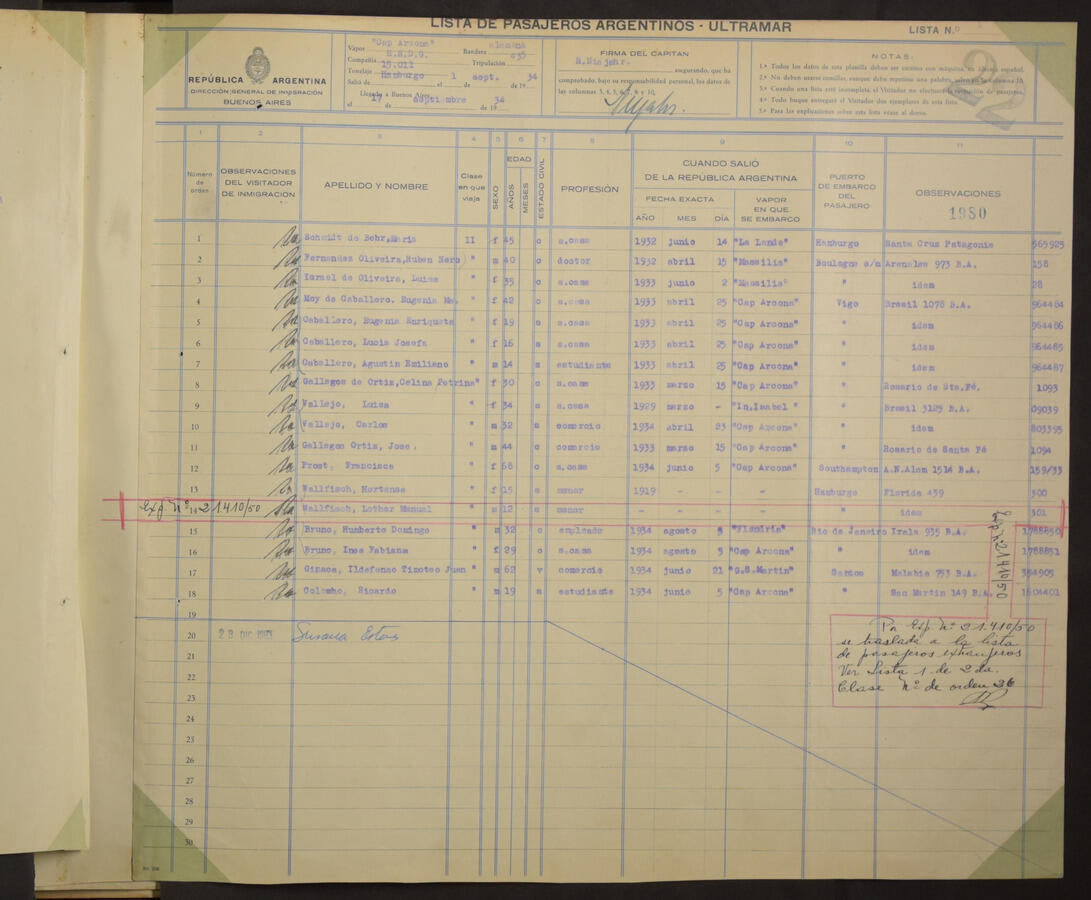 LISTA DE PASAJEROS ARGENTINOS - ULTRAMAR
LISTA N.º
REPÚBLICA ARGENTINA
DIRECCIÓN GENERAL DE INMIGRACIÓN
BUENOS AIRES
Vapor "Cap Arcona" Bandera alemana
Compañía H.S.D.G. Tripulación 435
Tonelaje 15.011
Salió de Hamburgo el 1 de sept. de 19 34
Llegado a Buenos Aires
el 17 de septiembre de 19 34
FIRMA DEL CAPITAN
E.Niejahr. asegurando, que ha
comprobado, bajo su responsabilidad personal, los datos de
las columnas 3, 4, 5, 6, 7, 8 y 10.
NOTAS:
1.ª Todos los datos de esta planilla deben ser escritos con máquina, en idioma español.
2.ª No deben usarse comillas, aunque deba repetirse una palabra, salvo en la columna 10.
3.ª Cuando una lista esté incompleta, el Visitador no efectuará la revisión de pasajeros.
4.ª Todo buque entregará al Visitador dos ejemplares de esta lista.
5.ª Para las explicaciones sobre esta lista véase al dorso.
22
1 2 3 4 5 6 7 8 9 10 11
Número de orden
OBSERVACIONES DEL VISITADOR DE INMIGRACION
APELLIDO Y NOMBRE
Clase en que viaja
SEXO
EDAD
AÑOS
MESES
ESTADO CIVIL
PROFESIÓN
CUANDO SALIÓ DE LA REPÚBLICA ARGENTINA
FECHA EXACTA
AÑO MES DÍA
VAPOR EN QUE SE EMBARCO
PUERTO DE EMBARCO DEL PASAJERO
OBSERVACIONES
1980
1 Schmidt de Behr,Maria II f 45 c s.casa 1932 junio 14 "La Lande" Hamburgo Santa Cruz Patagonia 565925
2 Fernandez Oliveira,Ruben Nero) " m 40 c doctor 1932 abril 15 "Massilia" Boulogne s/m Arenales 973 B.A. 158
3 Israel de Oliveira, Luisa " f 35 c s.casa 1933 junio 2 "Massilia" " idem 28
4 Moy de Caballero, Eugenia Ma. " f 42 c s.casa 1933 abril 25 "Cap Arcona" Vigo Brasil 1078 B.A. 964484
5 Caballero, Eugenia Enriqueta " f 19 s s.casa 1933 abril 25 "Cap Arcona" " idem 964486
6 Caballero, Lucia Josefa " f 16 s s.casa 1933 abril 25 "Cap Arcona" " idem 964485
7 Caballero, Agustin Emiliano " m 14 s estudiante 1933 abril 25 "Cap Arcona" " idem 964487
8 Gallegos de Ortiz,Celina Petrina" f 30 c s.casa 1933 marzo 15 "Cap Arcona" " Rosario de Sta.Fé. 1093
9 Vallejo, Luisa " f 34 c s.casa 1929 marzo - "In.Isabel " " Brasil 3125 B.A. 09039
10 Vallejo, Carlos " m 32 c comercio 1934 abril 23 "Cap Arcona" " idem 803395
11 Gallegos Ortiz, Jose. " m 44 c comercio 1933 marzo 15 "Cap Arcona" " Rosario de Santa Fé 1094
12 Frost, Francisca " f 68 c s.casa 1934 junio 5 "Cap Arcona" Southampton A.N.Alem 1514 B.A. 159/33
13 Wallfisch, Hortense " f 15 s menor 1919 - - - Hamburgo Florida 439 300
exp Nº 21410/50 14 Wallfisch, Lothar Manual " m 12 s menor - - - - " idem 301
15 Bruno, Humberto Domingo " m 32 c empleado 1934 agosto 5 "Flandria" Rio de Janeiro Irala 935 B.A. 1788850
16 Bruno, Ines Fabiana " f 29 c s.casa 1934 agosto 5 "Cap Arcona" " idem 1788851
17 Ginaca, Ildefonso Timoteo Juan " m 62 v comercio 1934 junio 21 "G.S.Martin" Santos Malabia 753 B.A. 354909
18 Colombo, Ricardo " m 19 s estudiante 1934 junio 5 "Cap Arcona" " San Martin 149 B.A. 1804401
19
20
21
22
23
24
25
26
27
28
29
30
Exp. Nº 21410/50
Por Exp. Nº 21.410/50
se traslada a la lista
de pasajeros extranjeros
Ver Lista 1 de 2da.
Clase Nº de orden 26